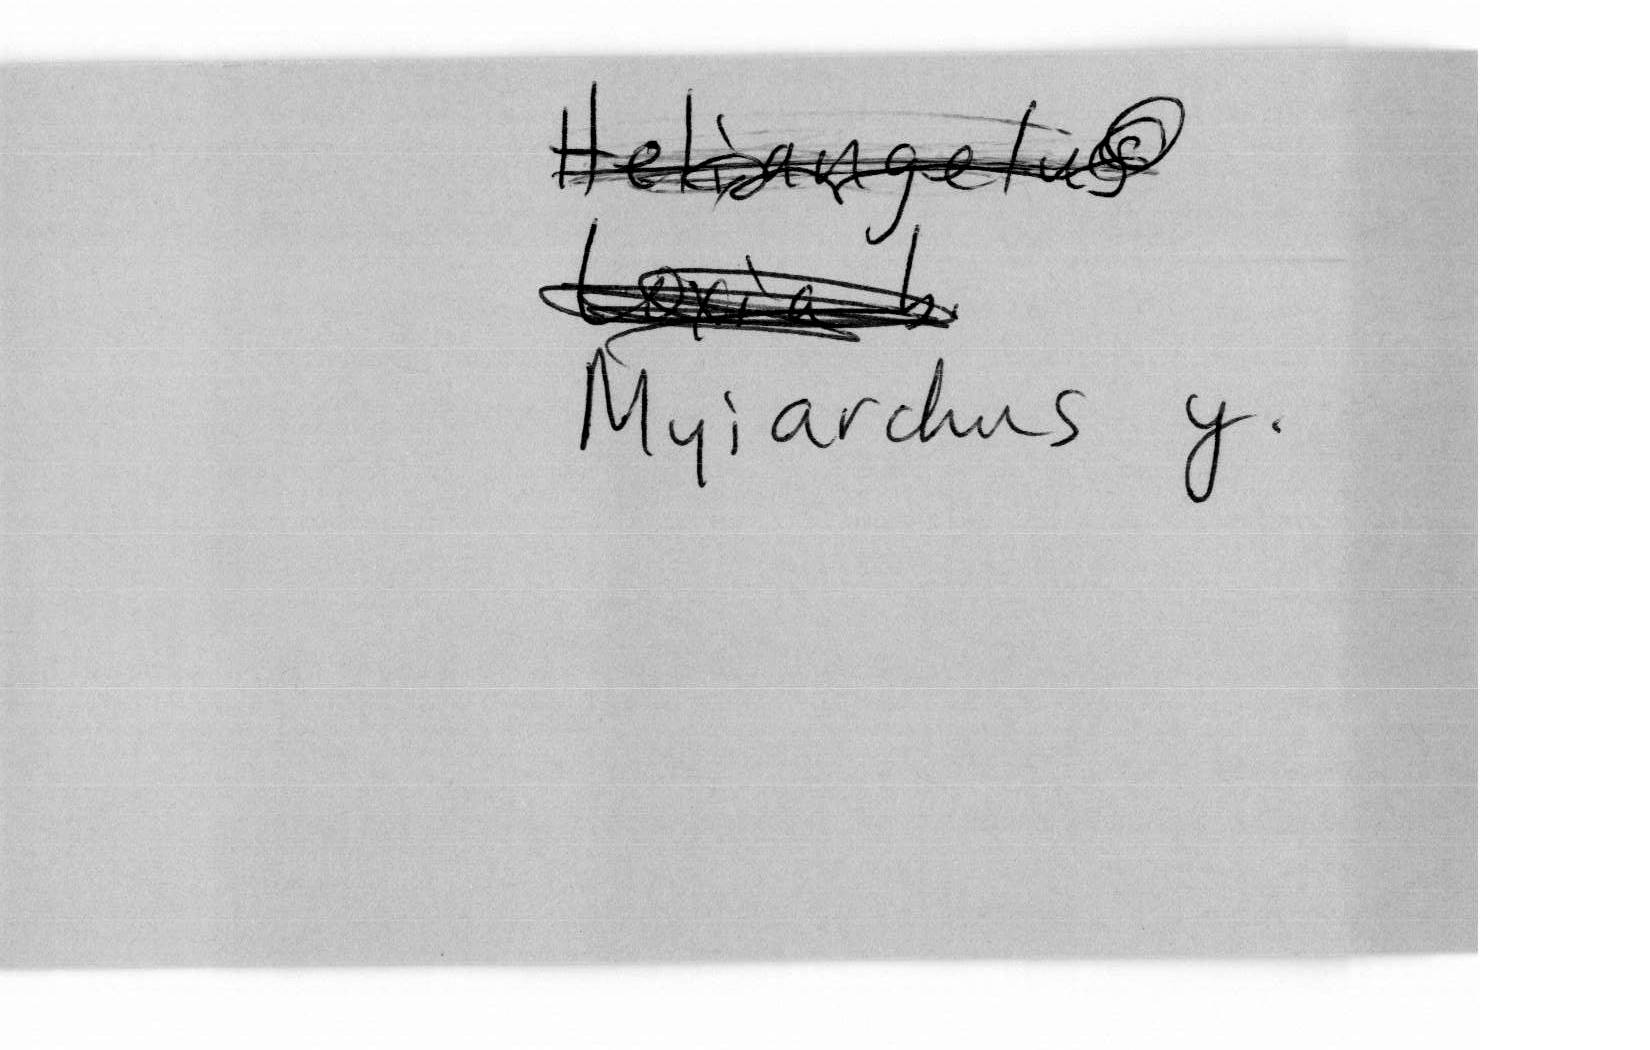 Heliangelus
Loxia h
Myiarchus y.